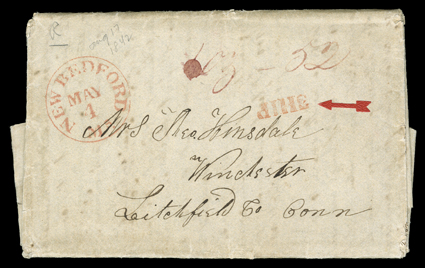 NEW BEDFORD
MAY
1
SHIP
Mrs Thea Hinsdale
Winchester
Litchfield Co Conn